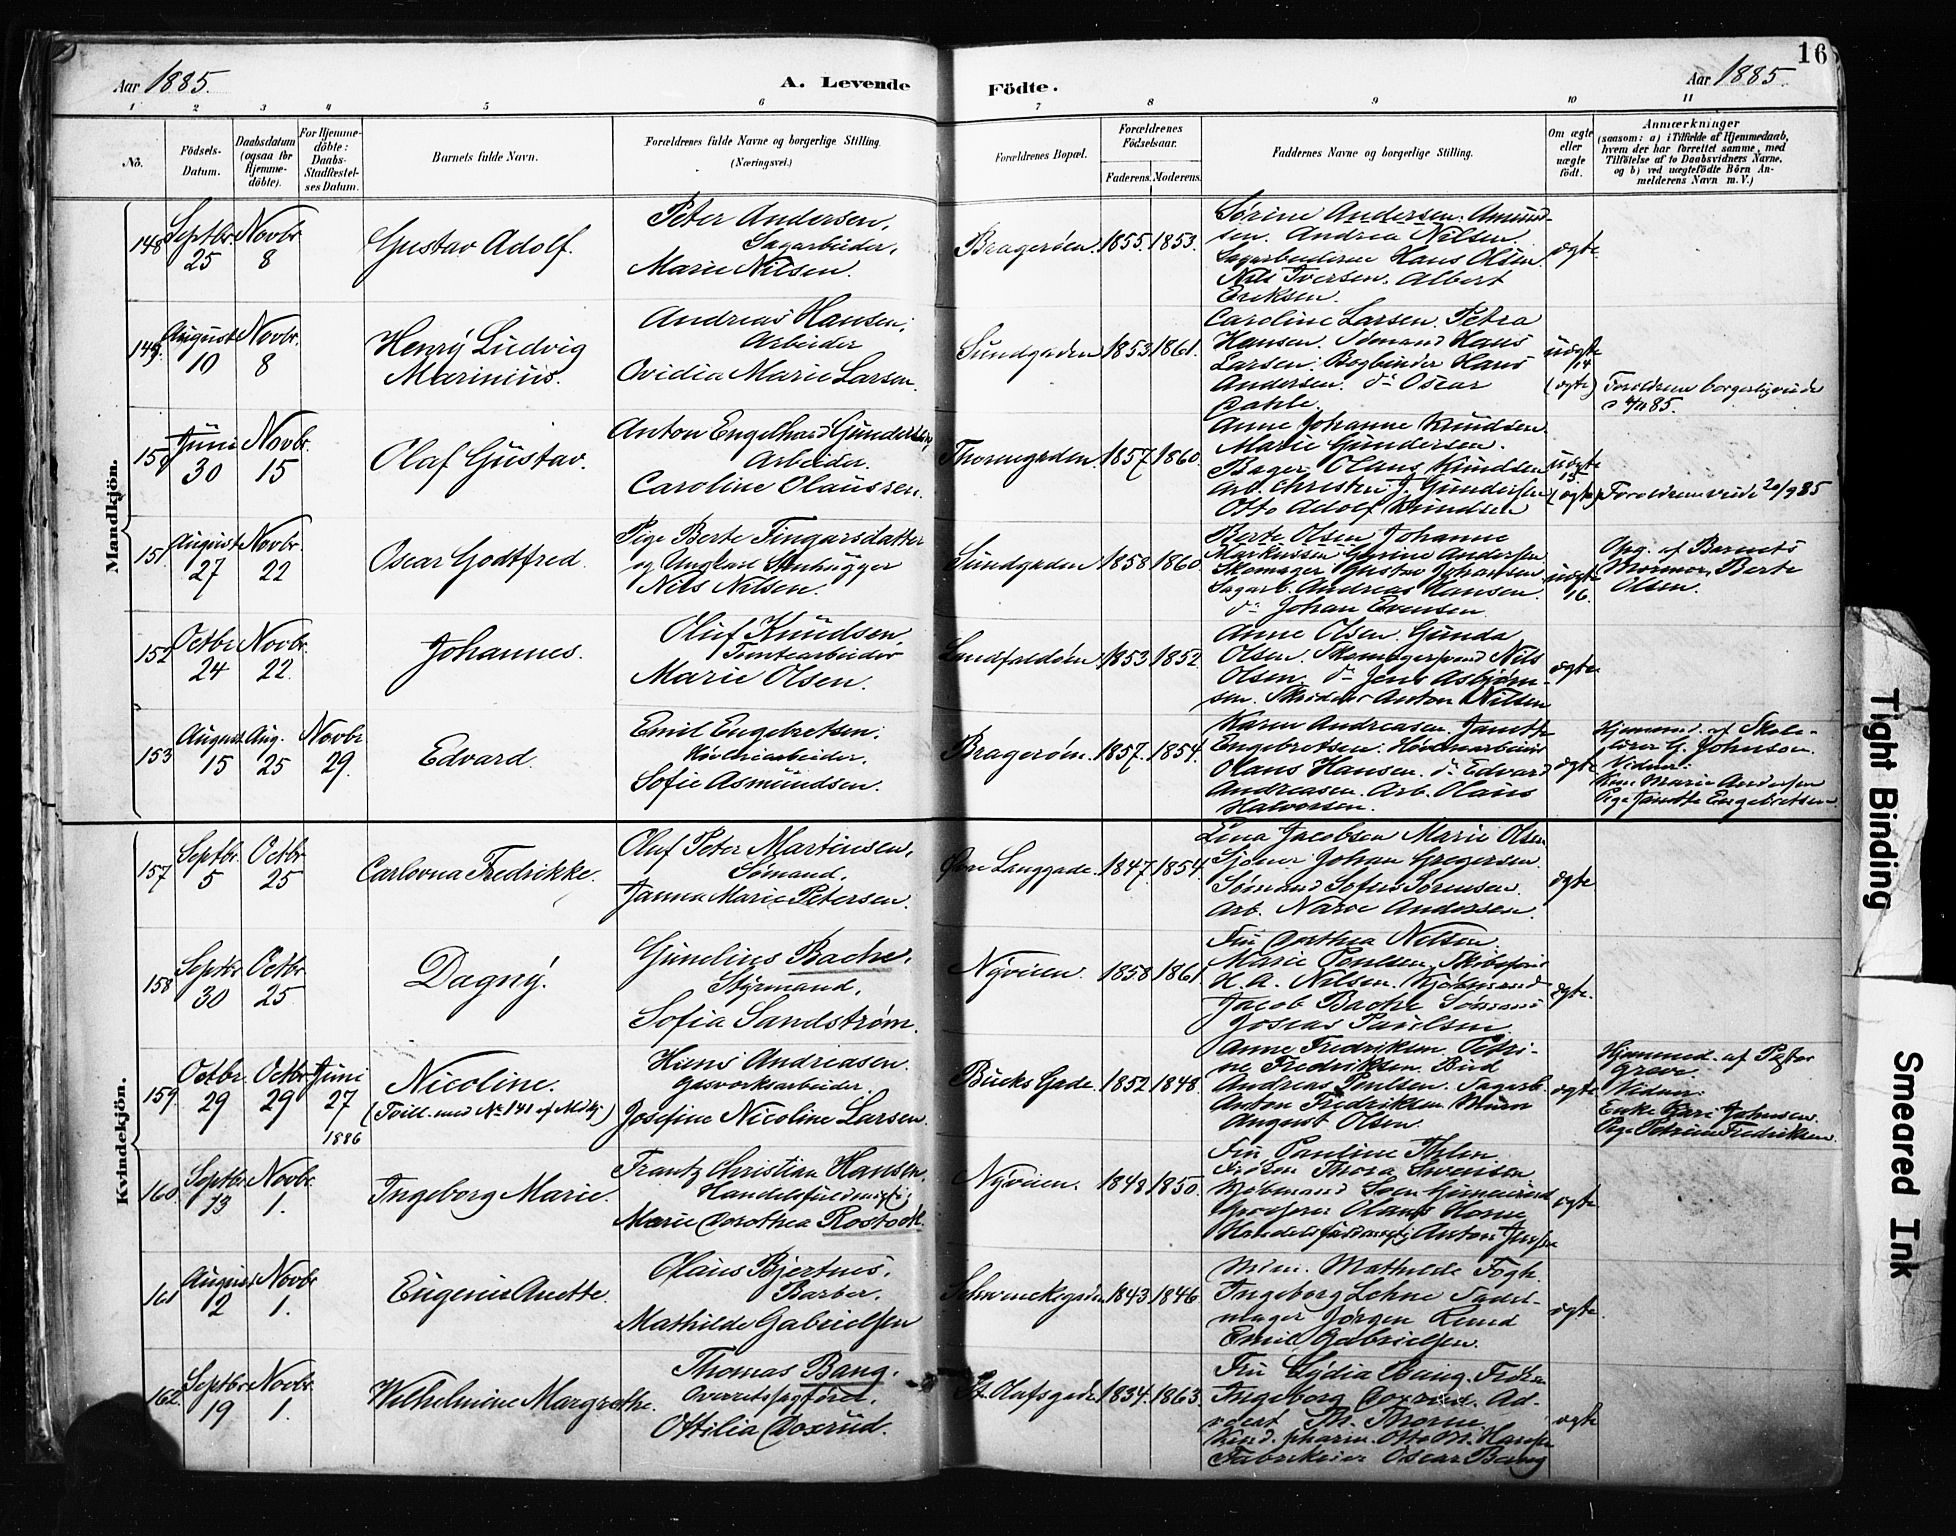 16
Aar 1885.
A. Levende
Födte.
Aar 1885.
1 2 3 4 5 6 7 8 9 10 11
No.
Födsels-
Datum.
Daabsdatum
(ogsaa for
Hjemme-
döbte).
For Hjemme-
döbte:
Daabs-
Stadfæstel-
ses Datum.
Barnets fulde Navn.
Forældrenes fulde Navne og borgerlige Stilling.
(Næringsvei.)
Forældrenes Bopæl.
Forældrenes
Födselsaar.
Faderens. Moderens.
Faddernes Navne og borgerlige Stilling.
Om ægte
eller
uægte
födt.
Anmærkninger
(saasom: a) i Tilfælde af Hjemmedaab,
hvem der har forrettet samme, med
Tilföielse af to Daabsvidners Navne,
og b) ved uægtefödte Börn An-
melderens Navn m. V.)
Mandkjön.
148 Septbr. 25 Novbr. 8
Gustav Adolf.
Peter Andersen,
Sagarbeider,
Marie Nilsen.
Bragerøen. 1855. 1853.
Sørine Andersen. Amund-
sen. Andrea Nilsen.
Sagarbeiderne Hans Olsen.
Nils Iversen. Albert
Eriksen.
ægte
149. August 10 Novbr. 8
Henrÿ Ludvig
Marinius.
Andreas Hansen,
Arbeider
Ovidia Marie Larsen.
Sundgaden 1853 1861.
Caroline Larsen. Petra
Hansen. Sømand Hans
Larsen. Bogbinder Hans
Andersen. do Oscar
Dahle.
uægte
14
(ægte)
Forældrene borgerlig viede
85.
150 Juni 30 Novbr. 15
Olaf Gustav.
Anton Engelhard Gundersen,
Arbeider.
Caroline Olaussen.
Thornegaden. 1857. 1860.
Anne Johanne Knudsen.
Marie Gundersen.
Bager Olaus Knudsen
Arb. Christen J. Gundersen
Otto Adolf Knudsen
uægte
15.
(ægte)
Forældrene viede 20/9 85
151 August 27 Novbr. 22
Oscar Godtfred.
Pige Berte Fingarsdatter
og Ungkarl Stenhugger
Nils Nilsen.
Sundgaden 1858 1860.
Berte Olsen Johanne
Markussen Gurine Andersen
Skomager Gustav Johansen
Sagarb. Andreas Hansen.
do Johan Evensen.
uægte
16.
Opg. af Barnets
Mormor, Berte
Olsen.
152 Octbr. 24 Novbr. 22.
Johannes.
Oluf Knudsen,
Tomtearbeider
Marie Olsen.
Landfaldøen 1853 1852
Anne Olsen. Gunda
Olsen. Skomagersvend Nils
Olsen. do Jens Asbjørn-
sen. Skrædder Anton Nilsen
ægte
153 August 15 Aug. 25 Novbr. 29.
Edvard.
Emil Engebretsen,
Høvleriarbeider,
Sofie Asmundsen.
Bragerøen. 1857. 1854.
Karen Andreasen. Janette
Engebretsen. Høvlerarbeider
Olaus Hansen. do Edvard
Andreasen. Arb. Olaus
Halvorsen.
ægte
Hjemmed. af Skole-
lærer G. Johnsen.
Vidner:
Kone Marie Andersen
Pige Janette Engebretsen.
Kvindekjön.
157 Septbr. 5 Octbr. 25
Carlovna Fredrikke.
Oluf Peter Martinsen,
Sømand,
Janna Marie Petersen.
Øvre Langgade. 1847. 1854
Lina Jacobsen Marie Olsen
Sjouer Johan Gregersen.
Sømand Sofus Sørensen.
Arb. Narve Andersen.
ægte
158 Septbr. 30 Octbr. 25
Dagnÿ.
Gunelius Bache,
Stÿrmand,
Sofia Sandstrøm.
Nÿveien. 1858 1861
Fru Dorthea Nilsen.
Marie Poulsen. Skibsfører
H. A. Nilsen. Kjøbmand
Jacob Bache Sømand
Josias Paulsen.
ægte.
159. Octbr. 29 Octbr. 29 Juni 27 1886
Nicoline.
(Tvill. med No 141 af Mdkj.)
Hans Andreasen
Gasværksarbeider,
Josefine Nicoline Larsen.
Bucks Gade. 1852 1848.
Anne Fredriksen. Petri-
ne Fredriksen. Bød.
Andreas Poulsen. Sagarb.
Anton Fredriksen. Murer
August Olsen.
ægte
Hjemmed. af Pastor
Greve.
Vidner:
Enke Kari Johnsen.
Pige Petrine Fredriksen.
160 Septbr. 13 Novbr. 1.
Ingeborg Marie.
Frantz Christian Hansen.
Handelsfuldmægtig
Marie Dorothea Rostock.
Nÿveien. 1848 1850.
Fru Pauline Thlen.
Frøken Thora Svensen
Kjøbmand Sven
Grosserer Olaus Horne
Handelsfuldmægtig Anton Jensen
ægte.
161 August 2 Novbr. 1.
Eugenie Anette.
Olaus Bjertnes,
Barber,
Mathilde Gabrielsen
Schwenckegaden 1843 1846
Mathilde Fogh.
Ingeborg Lehne Sadel-
mager Jørgen Lund
Emil Gabrielsen.
ægte.
162. Septbr. 19 Novbr. 1.
Wilhelmine Margrethe.
Thomas Bang,
Overretssagfører,
Ottilia Doxrud.
St. Olafsgade. 1834. 1863.
Fru Lÿdia Bang. Frøken
Ingeborg Doxrud. Ad-
vocat Th. Thorne
Kand. pharm. Otto M. Hansen
Fabrikeier Oscar Bang
ægte
Tight Binding
Smeared Ink